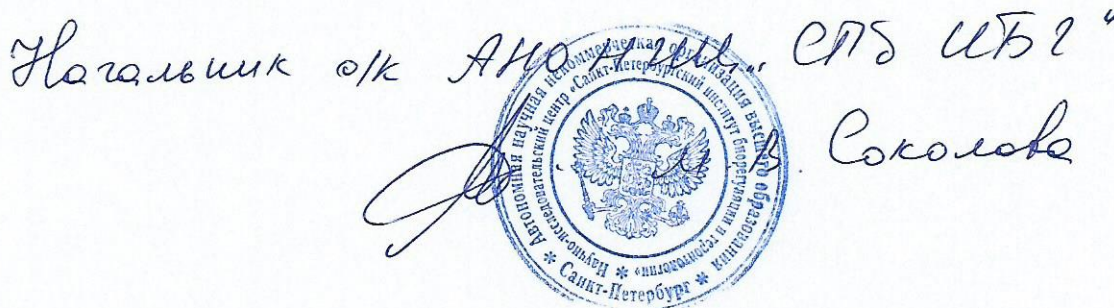 Начальник о/к АНО НИЦ „СПб ИБГ"
М. В. Соколова
Автономная научная некоммерческая организация высшего образования
Научно-исследовательский центр «Санкт-Петербургский институт биорегуляции и геронтологии»
* Санкт-Петербург *